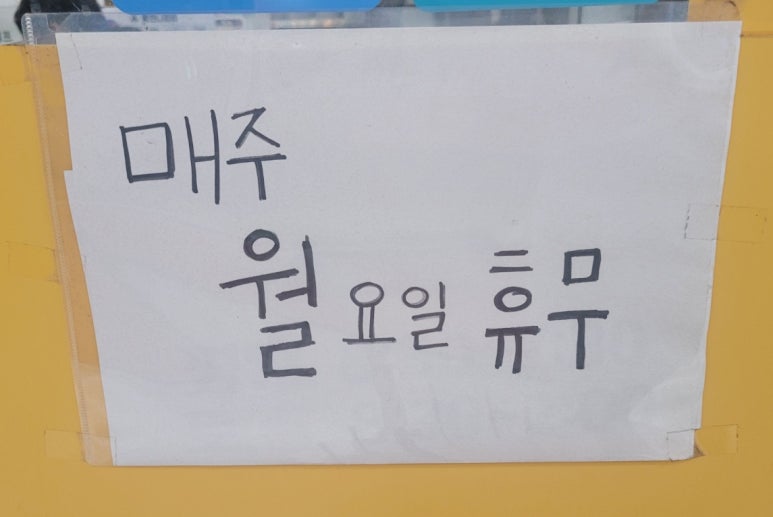 매주
월요일 휴무